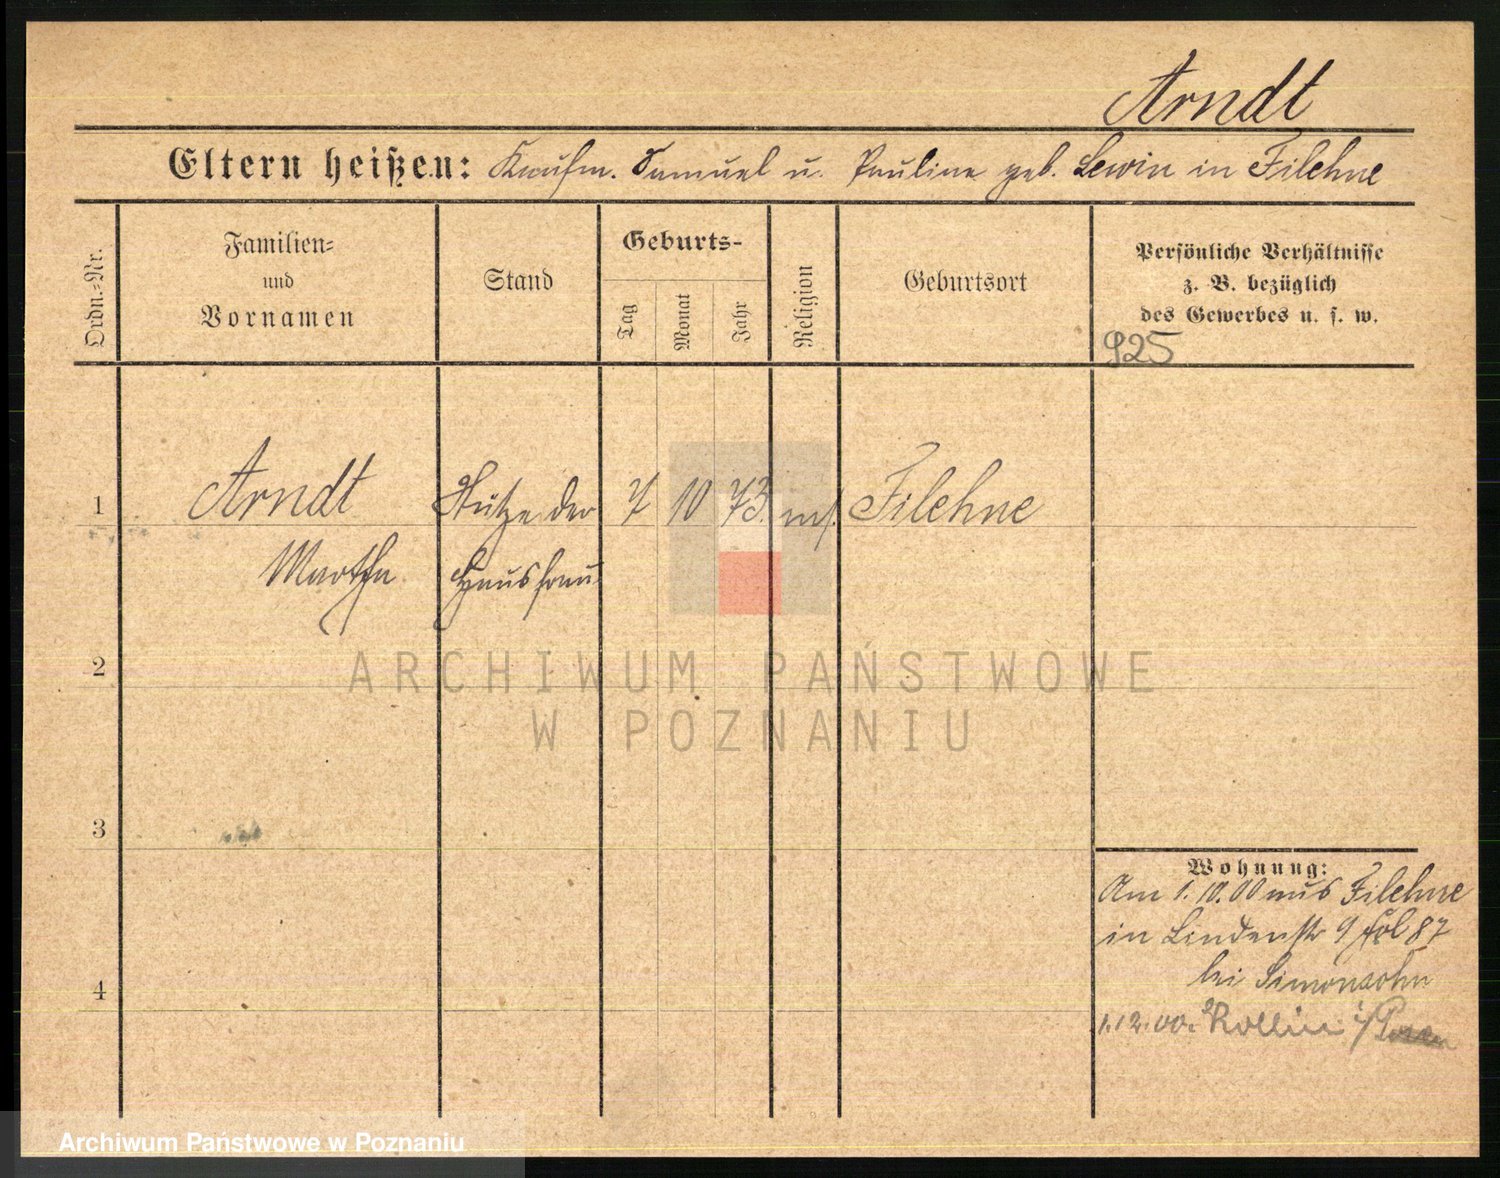 Arndt
Eltern heißen: Kaufm. Samuel u. Pauline geb. Lewin in Filehne
Ordn.-Nr.
Familien-
und
Vornamen
Stand
Geburts-
Tag
Monat
Jahr
Religion
Geburtsort
Persönliche Verhältnisse
z. B. bezüglich
des Gewerbes u. s. w.
925
1 Arndt Stütze der 7 10 73. ms. Filehne
Martha Hausfrau
ARCHIWUM PAŃSTWOWE
W POZNANIU
2
3
4
Wohnung:
Am 1.10.00 aus Filehne
in Lindenstr 9 fol 87
bei Simonsohn
1.12.00.
Archiwum Państwowe w Poznaniu